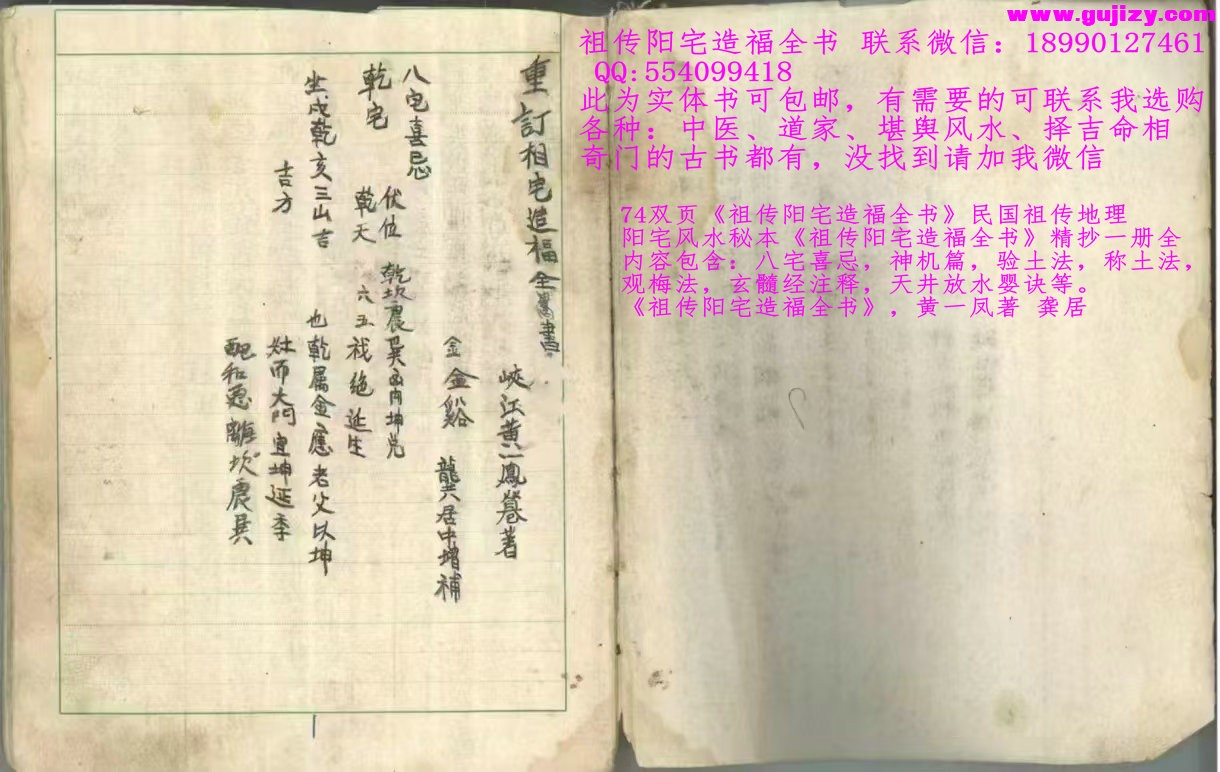 www.gujizy.com
祖传阳宅造福全书 联系微信：18990127461
QQ:554099418
此为实体书可包邮，有需要的可联系我选购
各种：中医、道家、堪舆风水、择吉命相
奇门的古书都有，没找到请加我微信
74双页《祖传阳宅造福全书》民国祖传地理
阳宅风水秘本《祖传阳宅造福全书》精抄一册全
内容包含：八宅喜忌，神机篇，验土法，称土法，
观梅法，玄髓经注释，天井放水婴诀等。
《祖传阳宅造福全书》，黄一凤著 龚居
重訂相宅造福全書
峽江黄一鳳著
金 金谿 龔居中增補
八宅喜忌
伏位 乾坎震巽 坤兑
乾宅 乾天 六五 绝延生
坐戌乾亥三山吉也乾属金應老父以坤
吉方 灶而大門宜坤延年
配和 離坎震巽